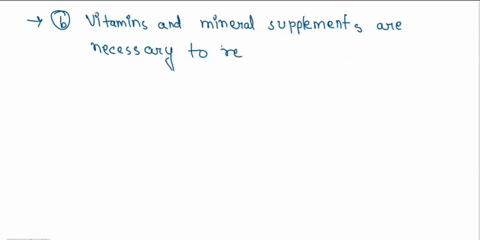 → ⓑ Vitamins and mineral supplements are
necessary to re